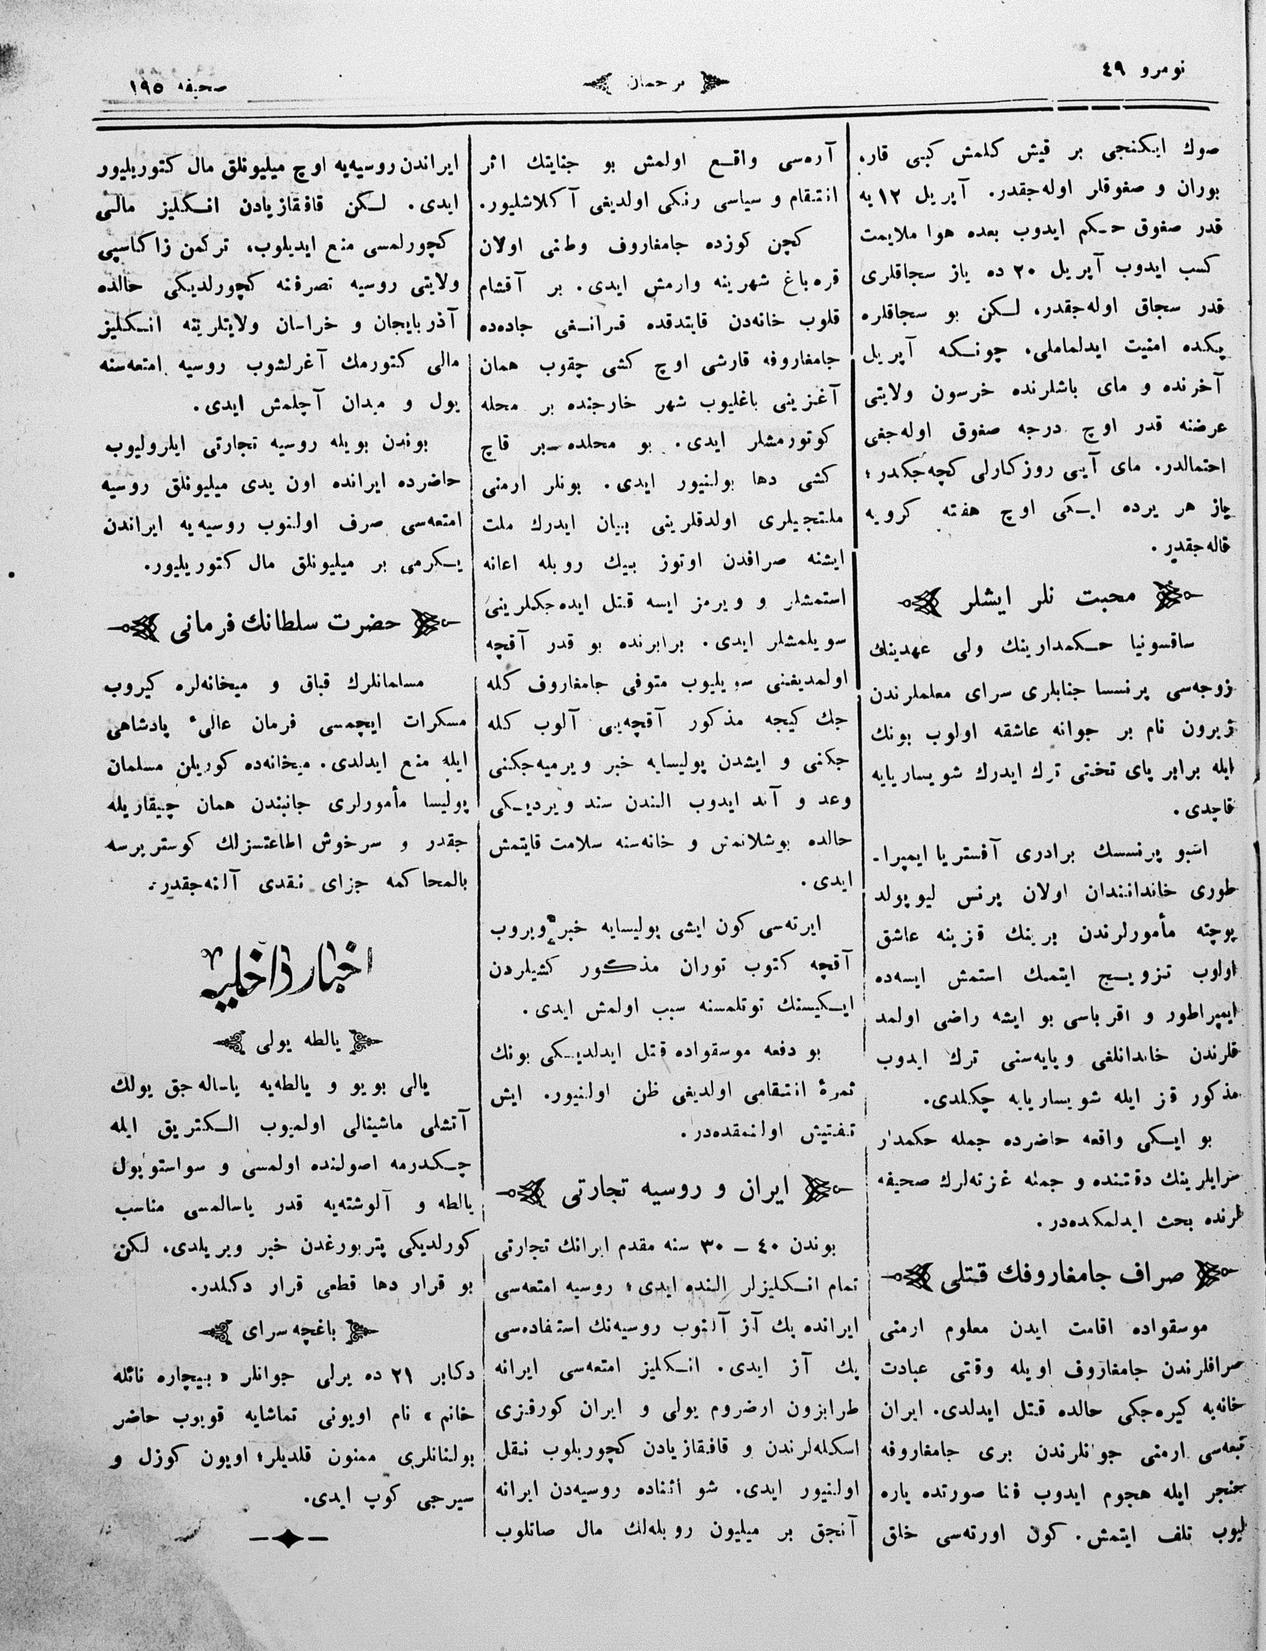 نومرو ٤٩
ترجمان
صحيفه ١٩٥
صوك ايكنجى بر قيش كلمش كبى قار،
بوران و صغوقلر اوله‌جقدر. آپريل ١٢ يه
قدر صغوق حكم ايدوب بعده هوا ملايمت
كسب ايدوب آپريل ٢٠ ده ياز سجاقلرى
قدر سجاق اوله‌جقدر. لكن بو سجاقلره
پكده امنيت ايدلماملى. چونكه آپريل
آخرنده و ماى باشلرنده خرسون ولايتى
عرضنه قدر اوچ درجه صغوق اوله‌جغى
احتمالدر. ماى آيى روزكارلى كچه‌جكدر؛
ياز هر يرده ايكى اوچ هفته كرويه
قاله‌جقدر.
محبت نلر ايشلر
ساقسونيا حكمدارينك ولى عهدينك
زوجه‌سى پرنسسا جنابلرى سراى معلملرندن
ژيرون نام بر جوانه عاشقه اولوب بونك
ايله برابر پاى تختى ترك ايدرك شويساريايه
قاچدى.
اشبو پرنسسك برادرى آفستريا ايمپرا-
طورى خاندانندان اولان پرنس ليوپولد
پوچته مأمورلرندن برينك قزينه عاشق
اولوب تزويج ايتمك استمش ايسه‌ده
ايمپراطور و اقرباسى بو ايشه راضى اولمد
قلرندن خاندانلغى و پايه‌سنى ترك ايدوب
مذكور قز ايله شويساريايه چكلدى.
بو ايكى واقعه حاضرده جمله حكمدار
سرايلرينك دقتنده و جمله غزته‌لرك صحيفه
لرنده بحث ايدلمكده‌در.
صراف جامغاروفك قتلى
موسقواده اقامت ايدن معلوم ارمنى
صرافلرندن جامغاروف اويله وقتى عبادت
خانه‌يه كيره‌جكى حالده قتل ايدلدى. ايران
تبعه‌سى ارمنى جوانلرندن برى جامغاروفه
خنجر ايله هجوم ايدوب فنا صورتده ياره
ليوب تلف ايتمش. كون اورته‌سى خلق
آره‌سى واقع اولمش بو جنايتك اثر
انتقام و سياسى رنكى اولديغى آكلاشليور.
كچن كوزده جامغاروف وطنى اولان
قره‌باغ شهرينه وارمش ايدى. بر آقشام
قلوب خانه‌دن قايتدقده قرانغى جاده‌ده
جامغاروفه قارشى اوچ كشى چقوب همان
آغزينى باغليوب شهر خارجنده بر محله
كوتورمشلر ايدى. بو محلده بر قاچ
كشى دها بولنيور ايدى. بونلر ارمنى
ملتجيلرى اولدقلرينى بيان ايدرك ملت
ايشنه صرافدن اوتوز بيك روبله اعانه
استمشلر و ويرمز ايسه قتل ايده‌جكلرينى
سويلمشلر ايدى. برابرنده بو قدر آقچه
اولمديغنى سويليوب متوفى جامغاروف كله
جك كيجه مذكور آقچه‌يى آلوب كله
جكنى و ايشدن پوليسايه خبر ويرميه‌جكنى
وعد و آند ايدوب الندن سند ويرديكى
حالده بوشلانمش و خانه‌سنه سلامت قايتمش
ايدى.
ايرته‌سى كون ايشى پوليسايه خبر ويروب
آقچه كتوب توران مذكور كشيلردن
ايكيسنك توتلمسنه سبب اولمش ايدى.
بو دفعه موسقواده قتل ايدلديكى بونك
ثمرۀ انتقامى اولديغى ظن اولنيور. ايش
تفتيش اولنمقده‌در.
ايران و روسيه تجارتى
بوندن ٤٠ – ٣٠ سنه مقدم ايرانك تجارتى
تمام انكليزلر النده ايدى؛ روسيه امتعه‌سى
ايرانده پك آز آلنوب روسيه‌نك استفاده‌سى
پك آز ايدى. انكليز امتعه‌سى ايرانه
طرابزون ارضروم يولى و ايران كورفزى
اسكله‌لرندن و قافقازيادن كچوريلوب نقل
اولنيور ايدى. شو اثناده روسيه‌دن ايرانه
آنجق بر ميليون روبله‌لك مال صاتلوب
ايراندن روسيه‌يه اوچ ميليونلق مال كتوريليور
ايدى. لكن قافقازيادن انكليز مالى
كچورلمسى منع ايديلوب، تركمن زاكاسپى
ولايتى روسيه تصرفنه كچورلديكى حالده
آذربايجان و خراسان ولايتلرينه انكليز
مالى كتورمك آغرلشوب روسيه امتعه‌سنه
يول و ميدان آچلمش ايدى.
بوندن بويله روسيه تجارتى ايلروليوب
حاضرده ايرانده اون يدى ميليونلق روسيه
امتعه‌سى صرف اولنوب روسيه‌يه ايراندن
يكرمى بر ميليونلق مال كتوريليور.
حضرت سلطانك فرمانى
مسلمانلرك قباق و ميخانه‌لره كيروب
مسكرات ايچمسى فرمان عالىء پادشاهى
ايله منع ايدلدى. ميخانه‌ده كوريلن مسلمان
پوليسا مأمورلرى جانبندن همان چيقاريله
جقدر و سرخوش اطاعتسزلك كوستررسه
بالمحاكمه جزاى نقدى آلنه‌جقدر.
اخبار داخليه
يالطه يولى
يالى بويو و يالطه‌يه ياساله‌جق يولك
آتشلى ماشينالى اولميوب الكتريق ايله
چكدرمه اصولنده اولمسى و سواستوپول
يالطه و آلوشته‌يه قدر ياسالمسى مناسب
كورلديكى پتربورغدن خبر ويريلدى، لكن
بو قرار دها قطعى قرار دكلدر.
باغچه سراى
دكابر ٢١ ده يرلى جوانلر «بيچاره نائله
خانم» نام اويونى تماشايه قويوب حاضر
بولنانلرى ممنون قلديلر؛ اويون كوزل و
سيرجى كوپ ايدى.